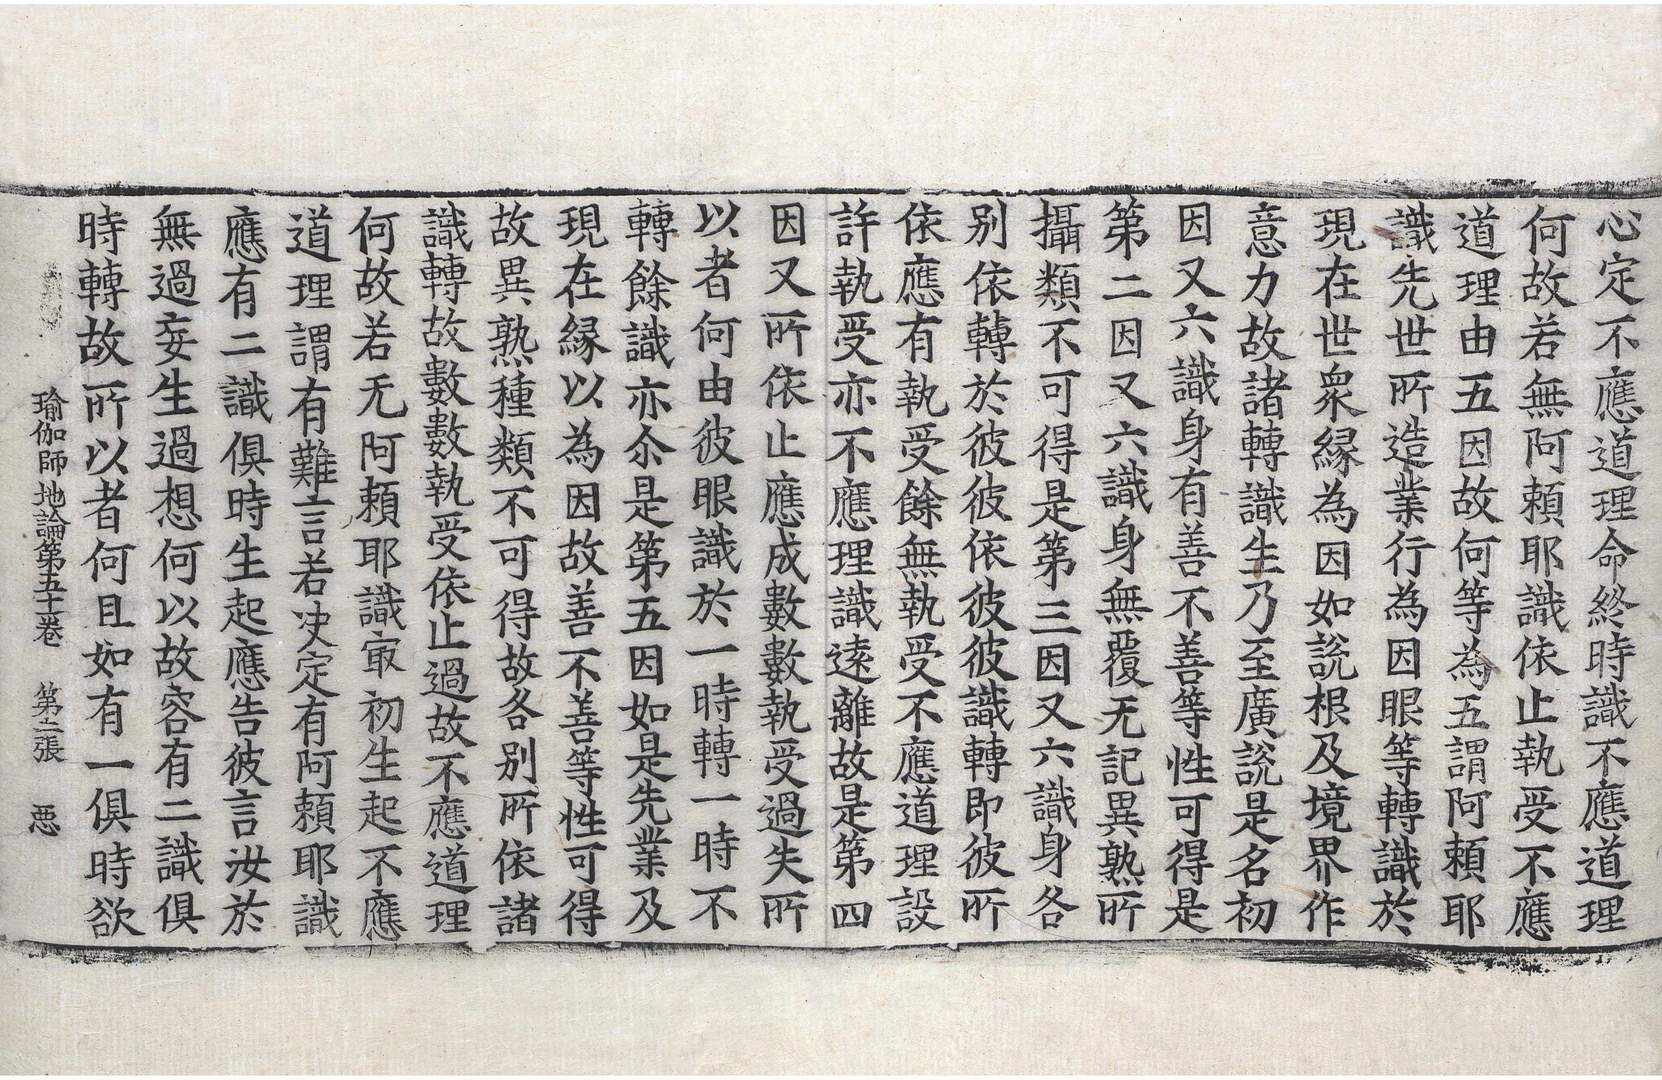 心定不應道理命終時識不應道理
何故若無阿賴耶識依止執受不應
道理由五因故何等為五謂阿賴耶
識先世所造業行為因眼等轉識於
現在世衆緣為因如說根及境界作
意力故諸轉識生乃至廣說是名初
因又六識身有善不善等性可得是
第二因又六識身無覆无記異熟所
攝類不可得是第三因又六識身各
別依轉於彼彼依彼彼識轉即彼所
依應有執受餘無執受不應道理設
許執受亦不應理識遠離故是第四
因又所依止應成數數執受過失所
以者何由彼眼識於一時轉一時不
轉餘識亦尒是第五因如是先業及
現在緣以為因故善不善等性可得
故異熟種類不可得故各別所依諸
識轉故數數執受依止過故不應道理
何故若无阿賴耶識㝡初生起不應
道理謂有難言若決定有阿賴耶識
應有二識俱時生起應告彼言汝於
無過妄生過想何以故容有二識俱
時轉故所以者何且如有一俱時欲
瑜伽師地論第五十一卷 第二張 惡